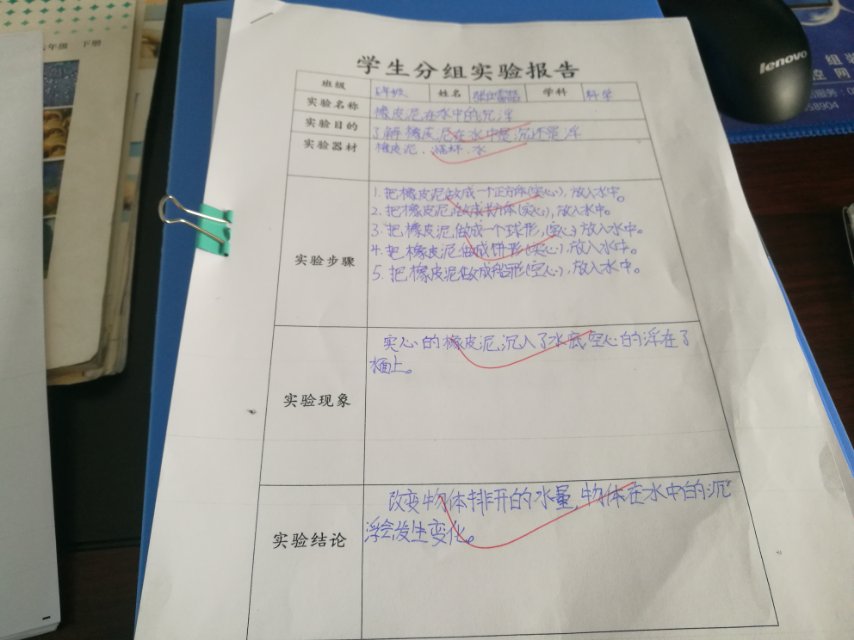 年级 下册
lenovo
组装
控网
服务:0
58904
学生分组实验报告
班级 五年级 姓名 学科 科学
实验名称 橡皮泥在水中的沉浮
实验目的 了解橡皮泥在水中是沉还是浮
实验器材 橡皮泥、 水
实验步骤
1. 把橡皮泥做成一个正方体(实心),放入水中。
2. 把橡皮泥做成长方体(实心),放入水中。
3. 把橡皮泥做成一个球形,(实心)放入水中。
4. 把橡皮泥做成饼形(实心),放入水中。
5. 把橡皮泥做成船形(空心),放入水中。
实验现象
实心的橡皮泥沉入了水底,空心的浮在了
水面上。
实验结论
改变物体排开的水量,物体在水中的沉
浮会发生变化。